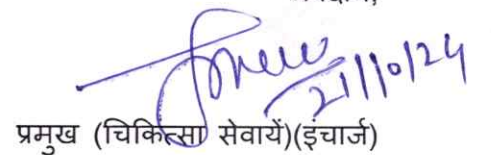 21/10/24
प्रमुख (चिकित्सा सेवायें)(इंचार्ज)